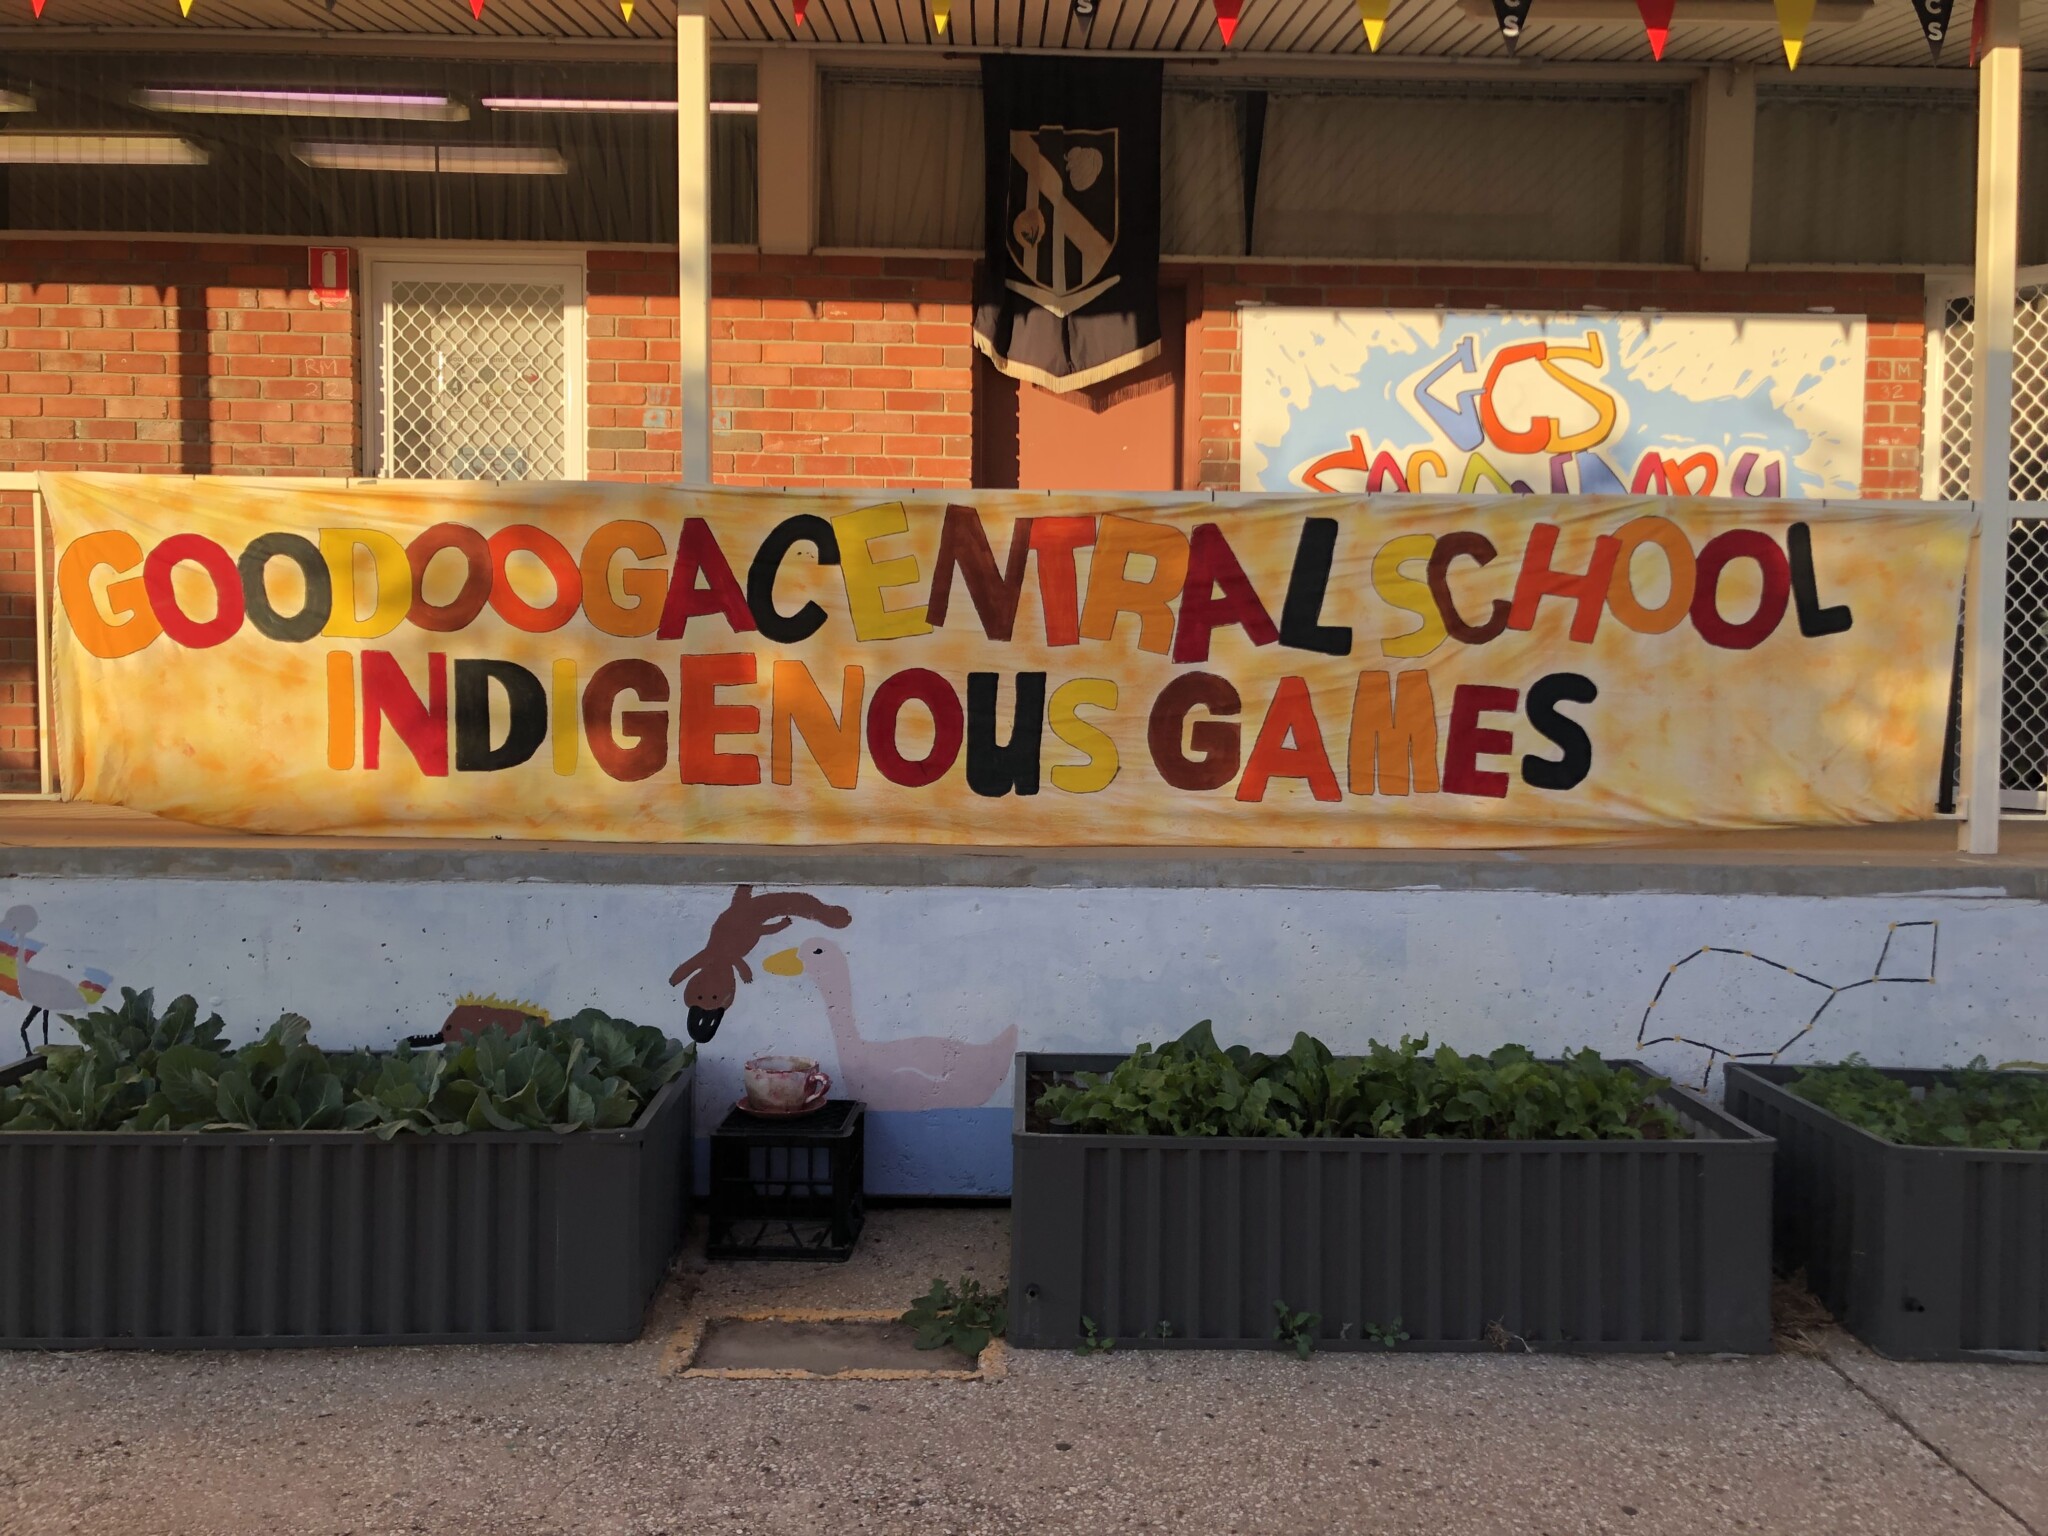 CS
CS
CS
RM
22
GCS
SECONDARY
RM
32
GOODOOGA CENTRAL SCHOOL
INDIGENOUS GAMES